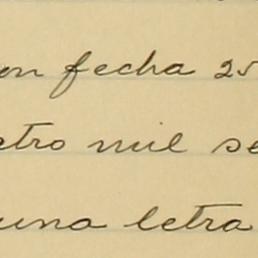 on fecha 25
etro mil se
una letra